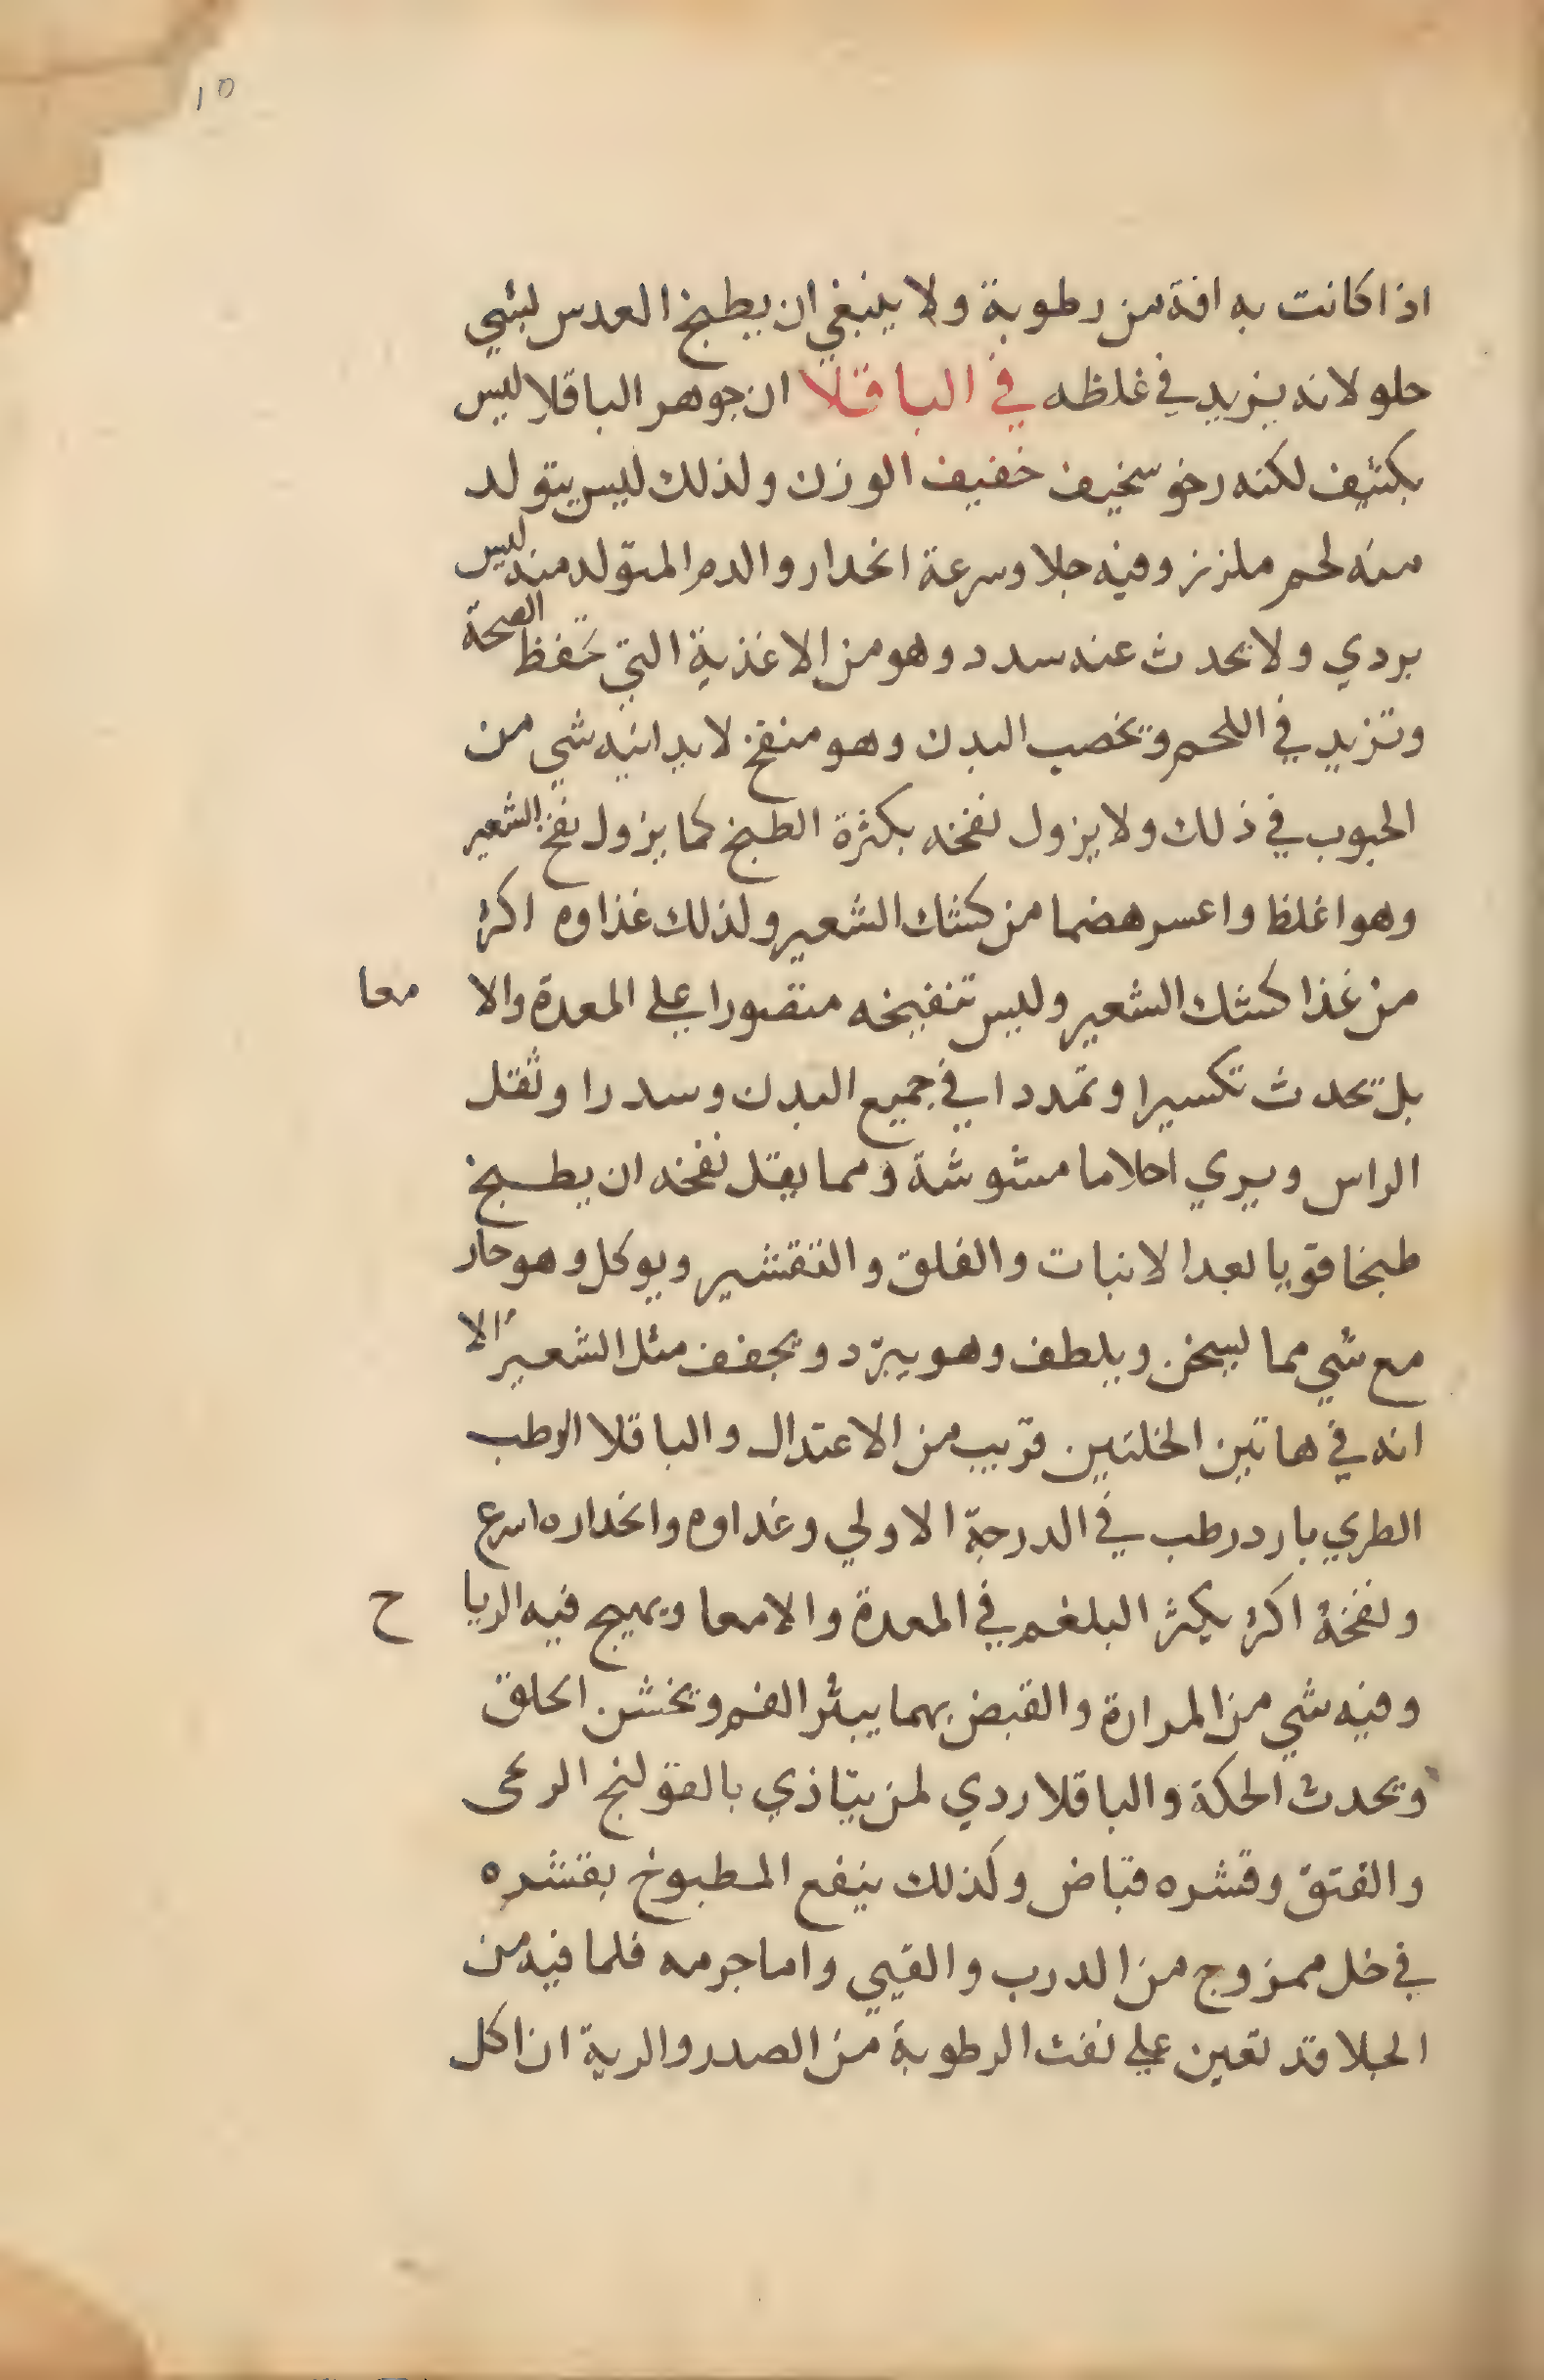 ١٥
اذا كانت به افة من رطوبة ولا ينبغي ان يطبخ العدس بشي
حلو لانه يزيد في غلظه في الباقلا ان جوهر الباقلا ليس
بكثيف لكنه رخو سخيف خفيف الوزن ولذلك ليس يتولد
منه لحم ملزز وفيه جلا وسرعة انحدار والدم المتولد منه ليس
بردي ولا يحدث عنه سدد وهو من الاغذية التي تحفظ الصحة
وتزيد في اللحم وتخصب البدن وهو منفخ لا يدانيه شي من
الحبوب في ذلك ولا يزول نفخه بكثرة الطبخ كما يزول نفخ الشعير
وهو اغلظ واعسر هضما من كشك الشعير ولذلك غذاوه اكثر
من غذا كشك الشعير وليس تنفيخه مقصورا علي المعدة والا معا
بل تحدث تكسيرا وتمددا في جميع البدن وسدرا وثقل
الراس ويري احلاما مشوشة ومما يقل نفخه ان يطبخ
طبخا قويا بعد الانبات والفلق والتقشير ويوكل وهو حار
مع شي مما يسخن ويلطف وهو يبرّد ويجفف مثل الشعير الا
انه في هاتين الخلتين قريب من الاعتدال والباقلا الرطب
الطري بارد رطب في الدرجة الاولي وغداوه وانحداره اسرع
ونفخهُ اكثر يكثر البلغم في المعدة والامعا ويهيج فيه الريا ح
وفيه شي من المرارة والقبض بهما يبثر الفم ويخشن الحلق
وتحدث الحكة والباقلا ردي لمن يتاذي بالقولنج الريحى
والفتق وقشره قباض وكذلك ينفع المطبوخ بقشره
في خل ممزوج من الدرب والقيي واما جرمه فلما فيه من
الجلا قد تعين علي نفث الرطوبة من الصدر والرية ان اكل